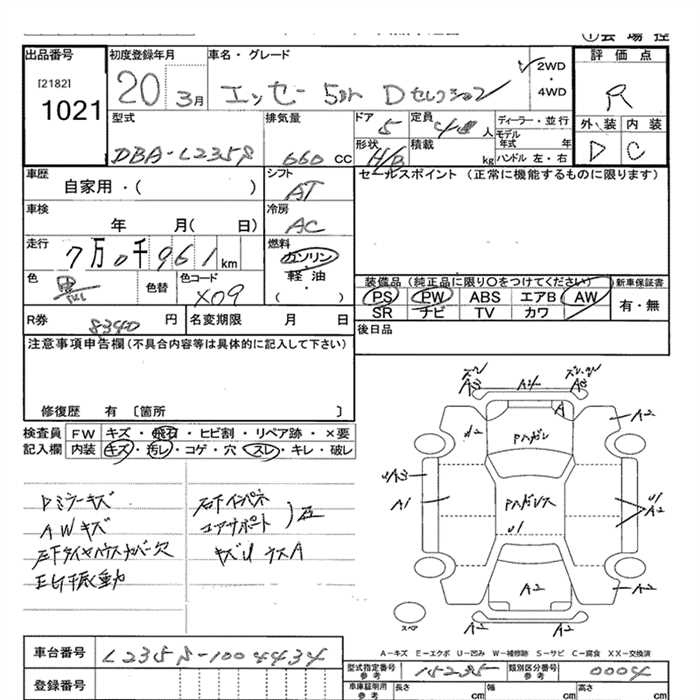 出品番号 初度登録年月 車名・グレード 2WD ・ 4WD 評価点
[2182]
1021 20 3月 エッセ 5Dr Dセレクション R
型式 排気量 ドア 5 定員 4 人 ディーラー・並行 外装 内装
モデル年式 年
DBA-L235S 660 CC 形状 H/B 積載 kg ハンドル 左・右 D C
車歴 シフト セールスポイント (正常に機能するものに限ります)
自家用・( ) AT
車検 冷房
年 月( 日) AC
走行 燃料
7万0千961km ガソリン
軽油
・( )
色 黒 色替 色コード X09
装備品 (純正品に限り○をつけてください) 新車保証書
PS PW ABS エアB AW 有・無
SR ナビ TV カワ
R券 8340 円 名変期限 月 日 後日品
注意事項申告欄(不具合内容等は具体的に記入して下さい)
修復歴 有 〔箇所 〕
検査員 FW キズ・飛石・ヒビ割・リペア跡・×要
記入欄 内装 キズ・汚レ・コゲ・穴・スレ・キレ・破レ
Dミラーキズ
AWキズ
右下タイヤハウスカバー欠
エンジン振動
右下インパネ
コアサポート
キズU サスA
A2
A
A2
d2
Pハガレ
UA3
A1
Pハガレス
U1
U1
A2
A2
A2
A2
A2
スペア
A-キズ E-エクボ U-凹み W-補修跡 S-サビ C-腐食 XX-交換済
車台番号 L235S-1004434
型式指定番号 参考 15235 類別区分番号 参考 0004
登録番号 車庫証明用 参考 長さ cm 幅 cm 高さ cm